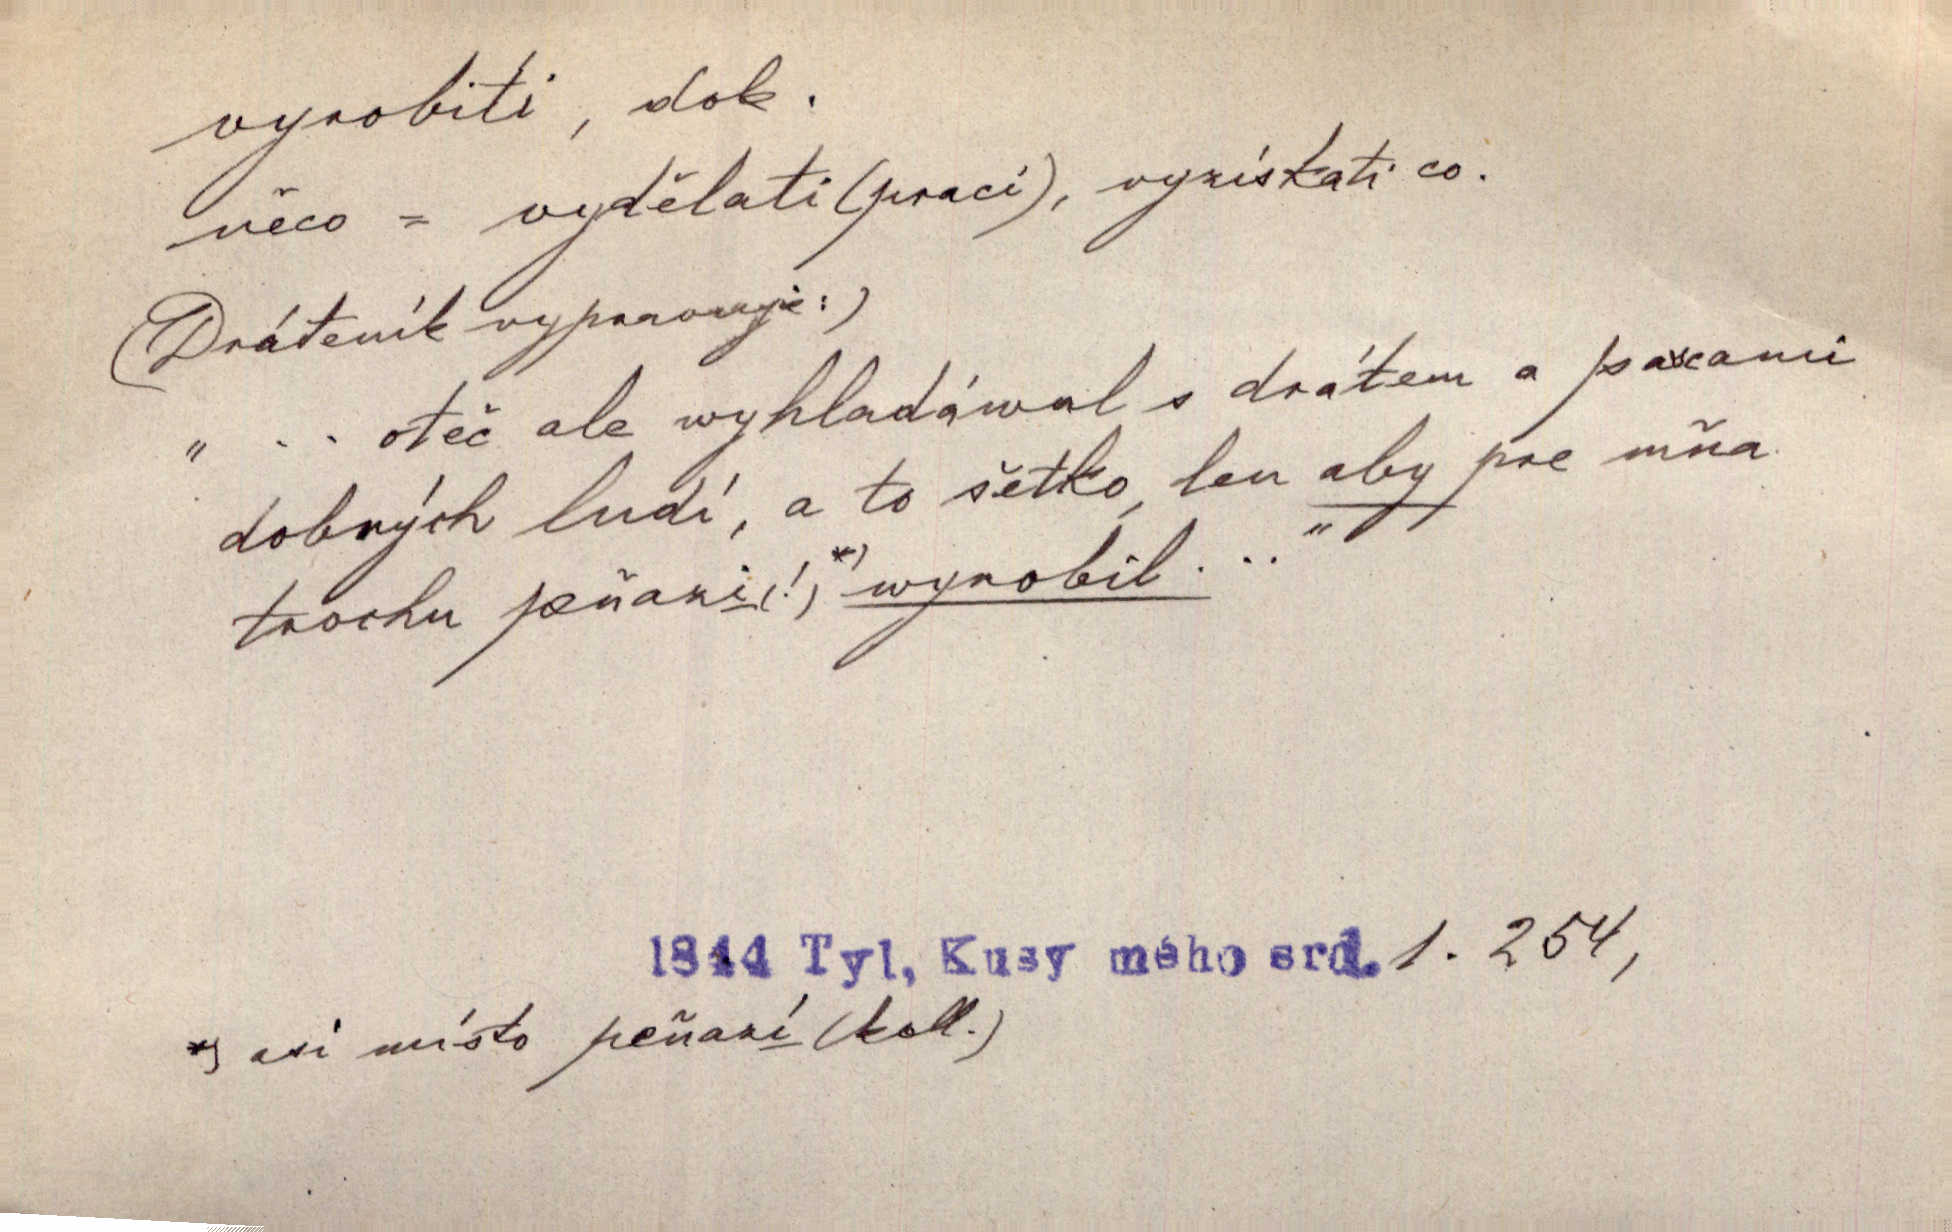 vyrobiti, dok.
něco = vydělati (prací), vyzískati co.
(Dráteník vypravuje:)
„ . . oteč ale wyhladáwal s drátem a pascami
dobrých ludí, a to šetko, len aby pre mňa
trochu peňazi (!) *) wyrobil . . . "
1844 Tyl, Kusy mého srd. 1. 254,
*) asi místo peňazí (koll.)